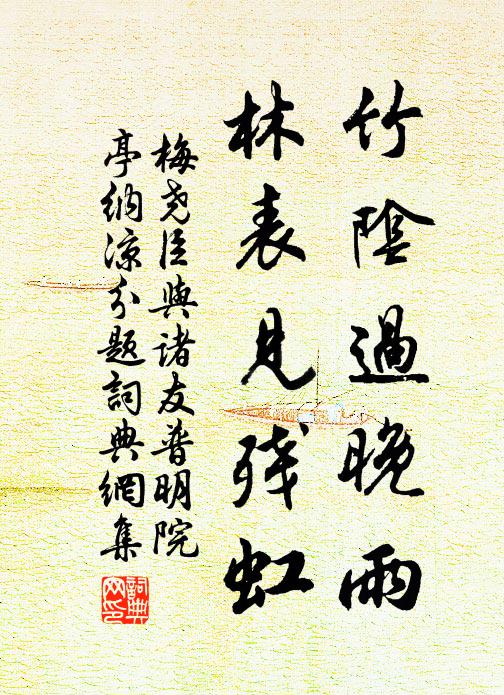 竹陰過晚雨
林表見残虹
梅尧臣與诸友普明院
亭納凉分题詞典網集
詞典网印